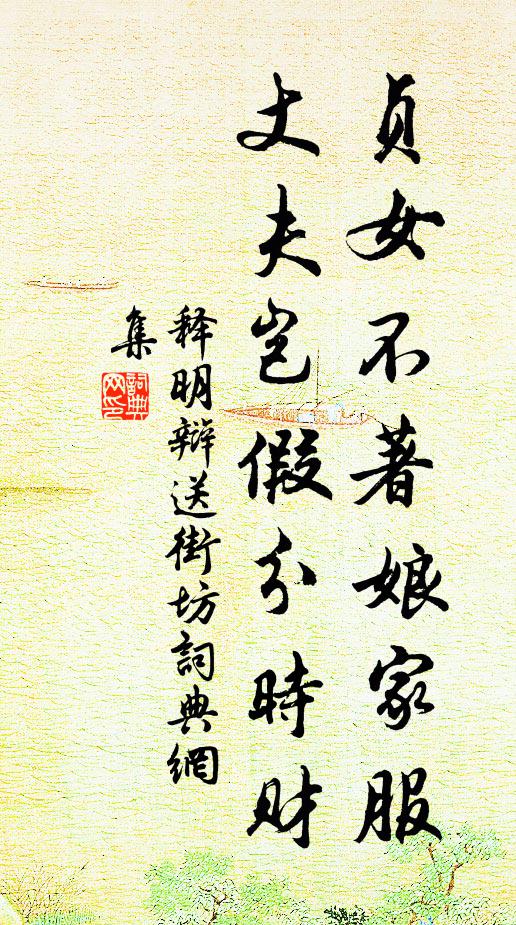 貞女不著娘家服
丈夫岂假分時財
释明辩送街坊詞典網
集
詞典
网印